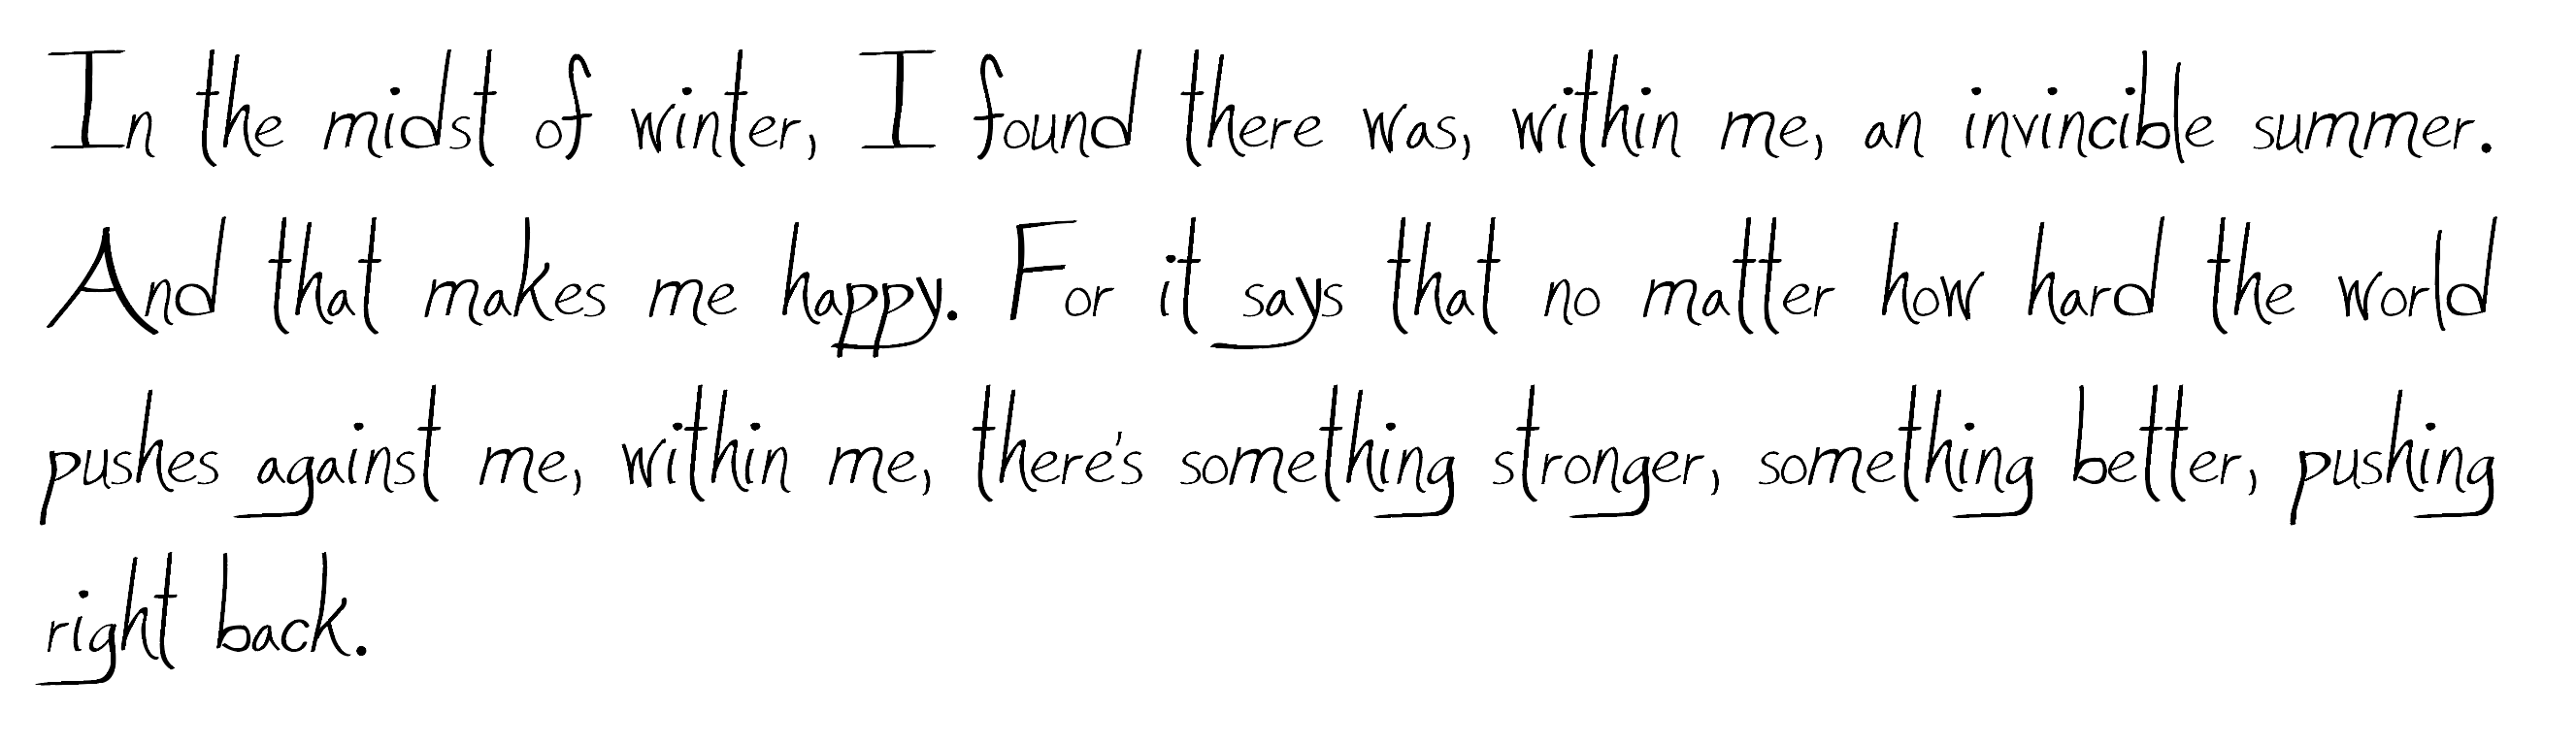 In the midst of winter, I found there was, within me, an invincible summer.
And that makes me happy. For it says that no matter how hard the world
pushes against me, within me, there's something stronger, something better, pushing
right back.